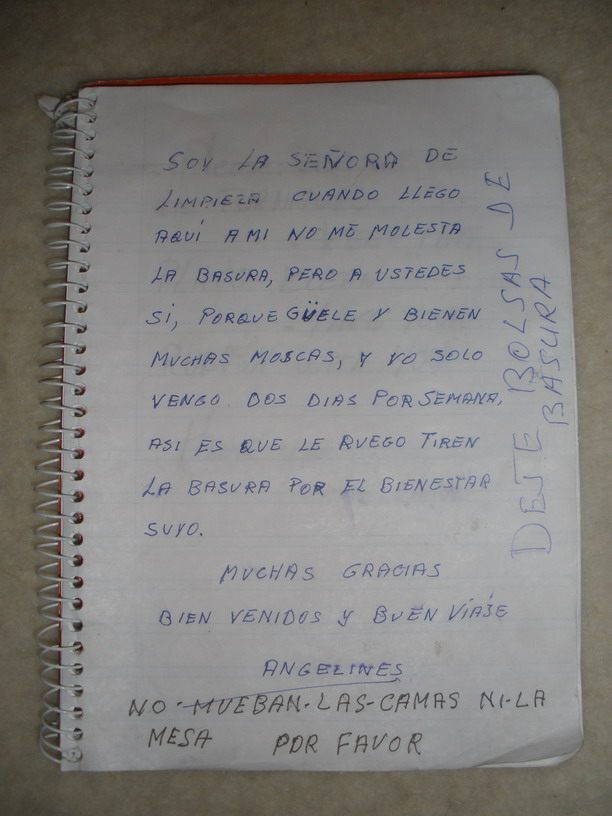 SOY LA SEÑORA DE
LIMPIEZA CUANDO LLEGO
AQUÍ A MI NO ME MOLESTA
LA BASURA, PERO A USTEDES
SI, PORQUE GÜELE Y BIENEN
MUCHAS MOSCAS, Y YO SOLO
VENGO DOS DIAS POR SEMANA,
ASI ES QUE LE RUEGO TIREN
LA BASURA POR EL BIENESTAR
SUYO.
MUCHAS GRACIAS
BIEN VENIDOS Y BUEN VIAJE
ANGELINES
NO-MUEBAN-LAS-CAMAS NI-LA
MESA POR FAVOR
DEJTE BOLSAS DE
BASURA